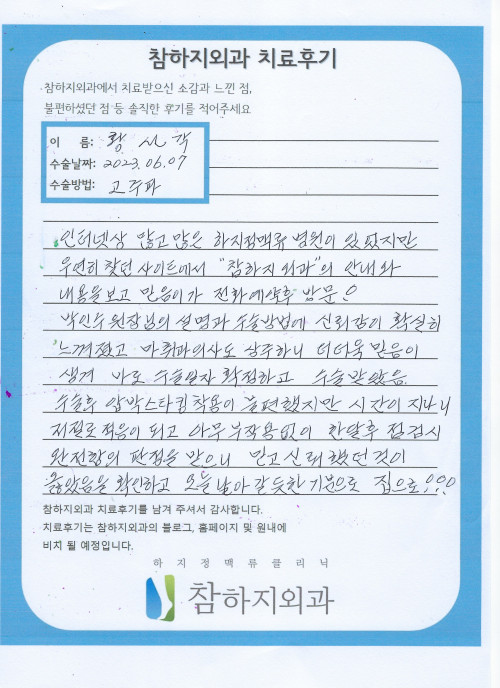 참하지외과 치료후기
참하지외과에서 치료받으신 소감과 느낀 점,
불편하셨던 점 등 솔직한 후기를 적어주세요
이 름: 황
수술날짜: 2023.06.07
수술방법: 고주파
인터넷상 많고 많은 하지정맥류 병원이 있었지만
우연히 찾던 사이트에서 "참하지외과"의 안내와
내용을 보고 믿음이가 전화예약후 방문!
박인수 원장님의 설명과 수술방법에 신뢰감이 확실히
느껴졌고 마취과의사도 상주하니 더더욱 믿음이
생겨 바로 수술일자 확정하고 수술받았음.
수술후 압박스타킹착용이 불편했지만 시간이 지나니
저절로 적응이 되고 아무 부작용없이 한달후 점검시
완전함의 판정을 받으니 믿고 신뢰했던것이
옳았음을 확인하고 오늘 날아갈듯한 기분으로 집으로!!!
참하지외과 치료후기를 남겨 주셔서 감사합니다.
치료후기는 참하지외과의 블로그, 홈페이지 및 원내에
비치 될 예정입니다.
하지정맥류클리닉
참하지외과